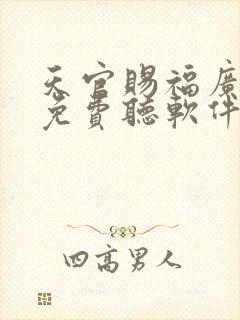 天官賜福廣
免費聽軟件
四高男人